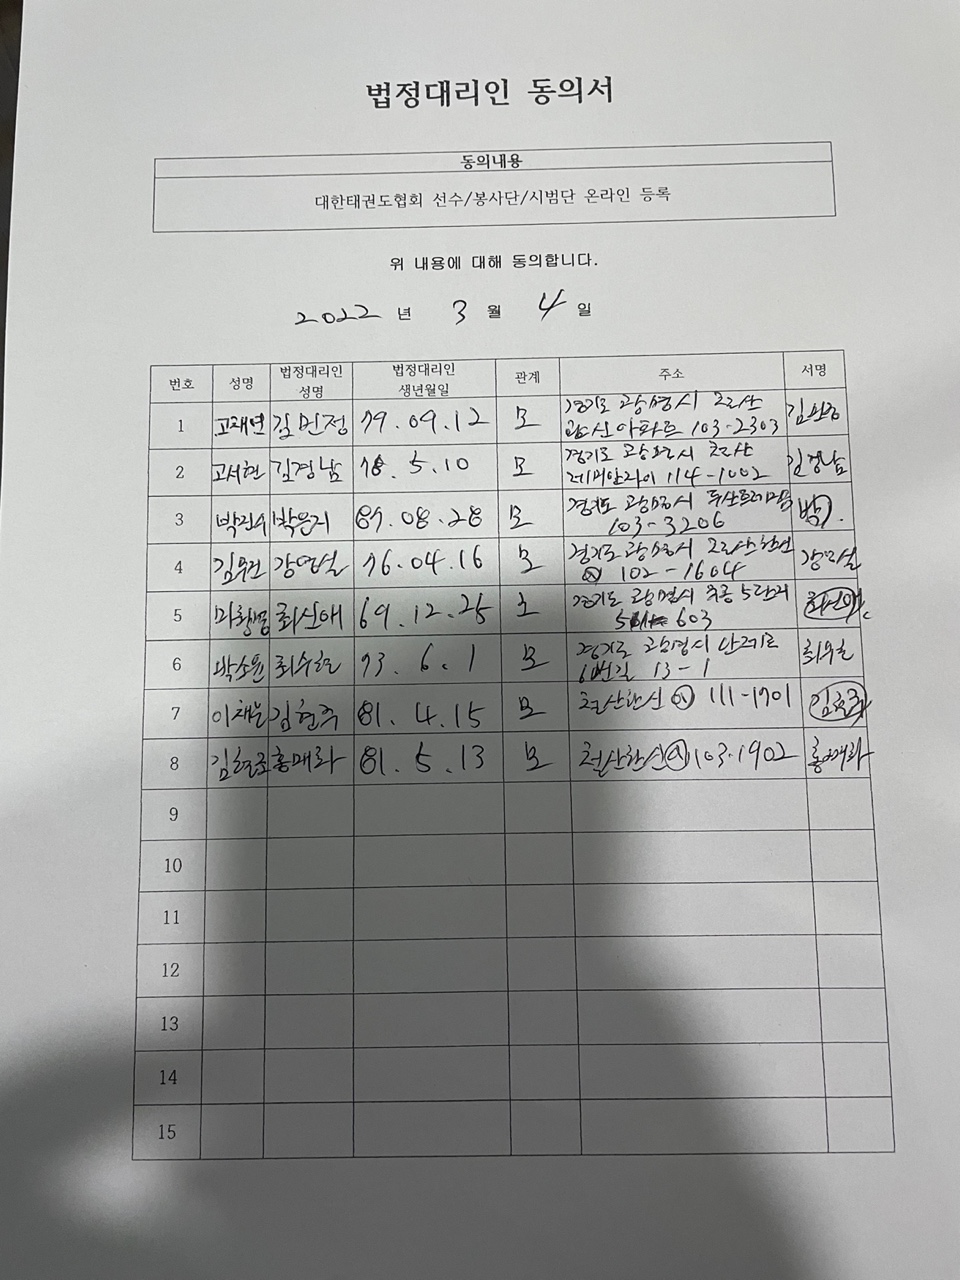 법정대리인 동의서
동의내용
대한태권도협회 선수/봉사단/시범단 온라인 등록
위 내용에 대해 동의합니다.
2022 년 3 월 4 일
번호 성명 법정대리인 성명 법정대리인 생년월일 관계 주소 서명
1 고재연 김민정 79.09.12 모 경기도 광명시 철산
한신아파트 103-2303
2 고서현 김경남 78.5.10 모 경기도 광명시 철산
래미안자이 114-1002 김경남
3 박은지 87.08.28 모 경기도 광명시 두산트레지움
103-3206
4 76.04.16 모 경기도 광명시 철산한신
102-1604
5 최신애 69.12.25 경기도 광명시 주공 5단지
603 최신애
6 박소윤 73.6.1 모 경기도 광명시
13-1
7 김현주 81.4.15 모 철산한신 111-1701 김현주
8 홍매화 81.5.13 모 철산한신 103-1902 홍매화
9
10
11
12
13
14
15